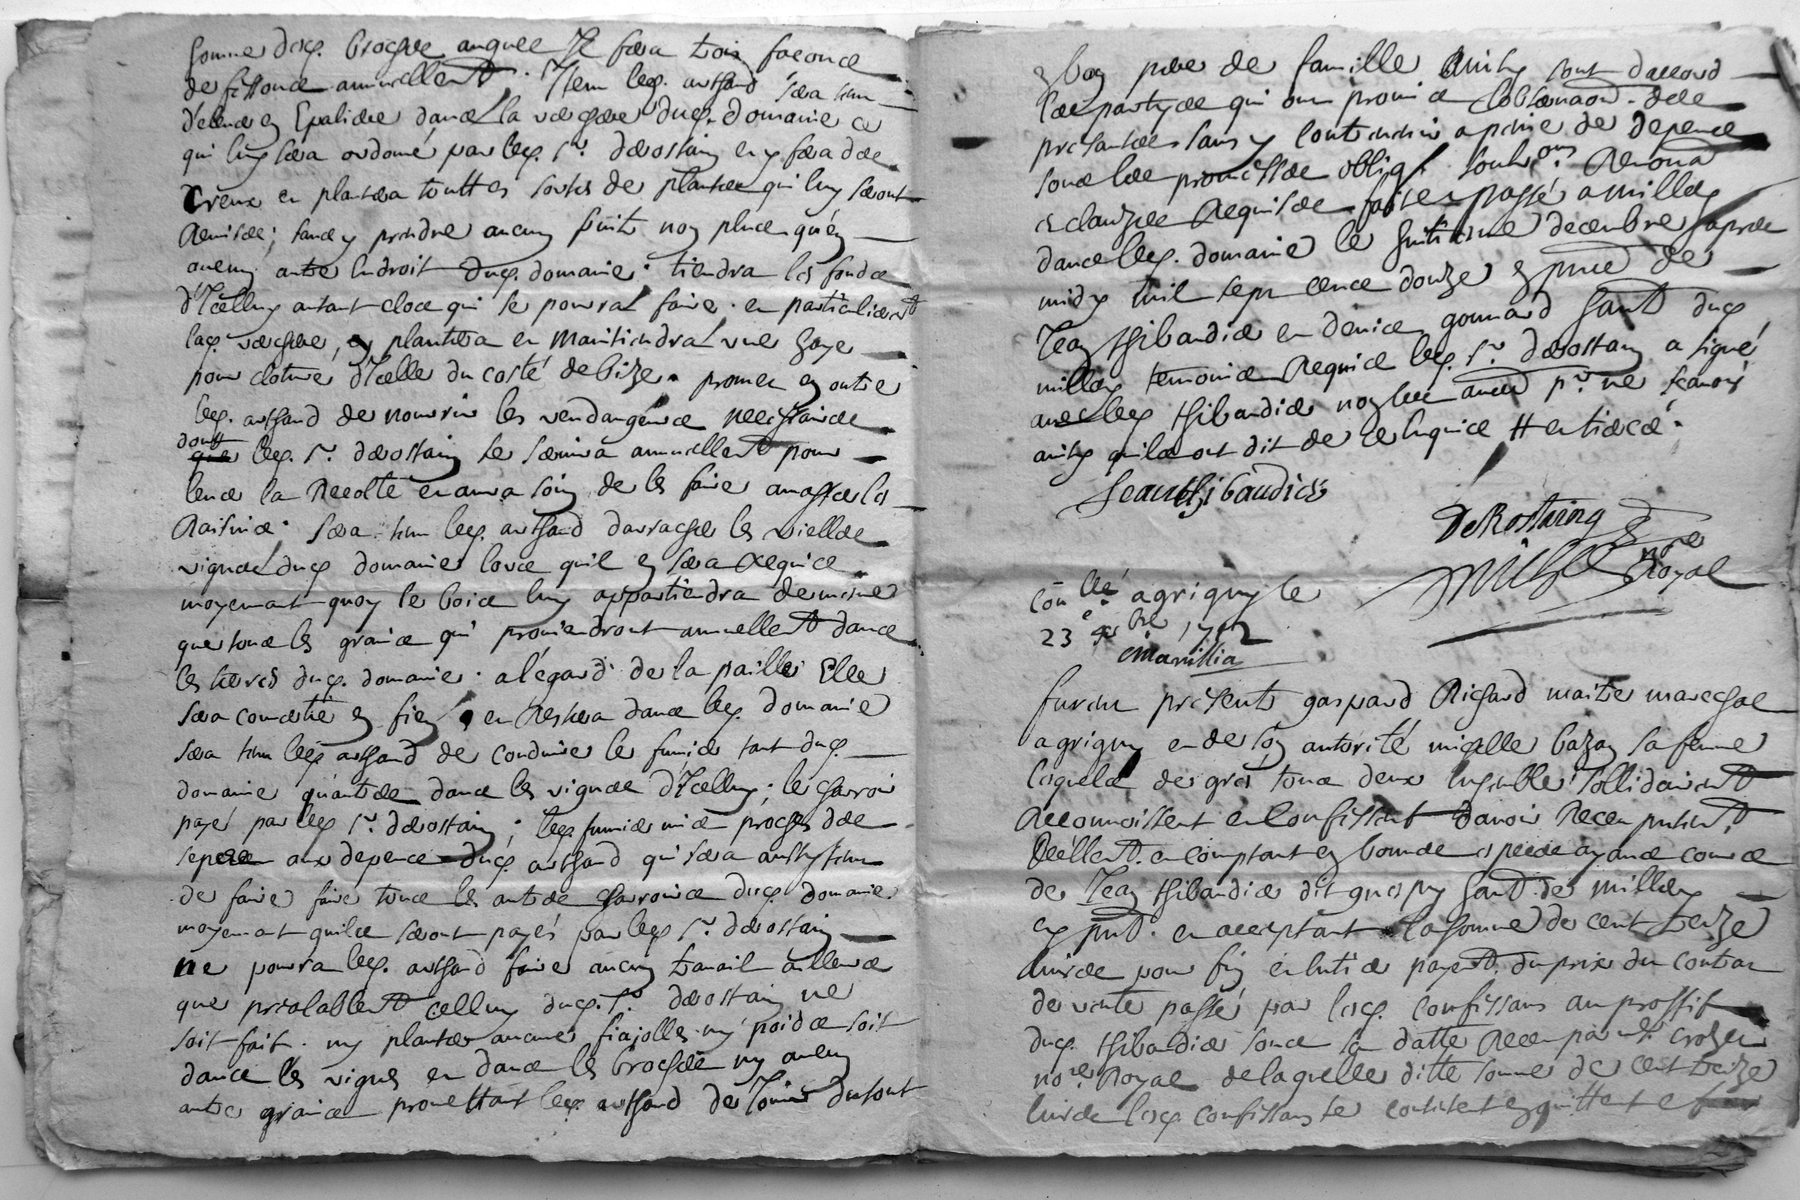 somme desd. broches auquel Il fera trois façons
de fissouse annuellemt. Item led. arthaud sera tenu
d'eslever Espaliers dans la verchere dud. domaine ce
qui luy sera ordonné par led. Sr. derostaing en y fera des
creux en plantera touttes sortes de plantes qui luy seront
remises; sans y prendre aucun fruit non plus qu'en
aucung autre endroit dud. domaine. tiendra les fonds
d'Icelluy autant clos qui se pourra faire. en particulieremt
lad. verchere, en plantera en maintiendra une haye
pour cloture d'Icelle du costé de bize. promet en outre
led. arthaud de nourrir les vendangeurs necessaires
dont led. Sr. derostaing se servira annuellemt pour
leur la recolte en aura soin de les faire amasser les
Raisins. sera tenu led. arthaud d'arracher les vielles
vignes dud. domaine lors qu'il en sera requis
moyenant quoy le bois luy appartiendra de mesme
que tous les grains qui proviendront annuellemt dans
les terres dud. domaine. a l'egard de la paille Elle
sera convertie en fien, en restera dans led. domaine
sera tenu led. arthaud de conduire le fumier tant dud.
domaine qu'autre dans les vignes d'Icelluy; le charroir
payé par led. Sr. derostaing; led. fumier mis proche des
seps aux depences dud. arthaud qui sera aussy tenu
de faire faire tous les autres charrois dud. domaine.
moyenant qu'ils seront payés par led. Sr. derostaing
ne pourra led. arthaud faire aucun travail ailleurs
que prealablemt celluy dud. Sr. derostaing ne
soit fait. ny planter aucunes fiajolles ny poids soit
dans les vignes en dans les broches ny aucun
autre grains promettant led. arthaud de Jouir du tout
en bon pere de famille Ainsy sont d'accord
les partyes qui ont promis l'observaon. des
presantes sans y contrevenir a peine de depens
sous les promesses oblig. soubmons. Renona
et clauzes requises fait et passé a millery
dans led. domaine le huitiesme decembre apres
midy mil sept cents douze en pnce de
Jean thibaudier en denis gonnard hant dud.
millery temoins requis led. Sr. derostaing a signé
avec led. thibaudier non led. arthd pr. ne sçavoir
ainsy qu'ils ont dit de ce enquis et entercé.
Jean thibaudier
De Rostaing
nore Royal
Conllé a grigny le
23 e xbre 1712
furent presents gaspard Richard maitre marechal
a grigny en de son autorité micelle bazan sa femme
lesquels de gres tous deux ensemble sollidairemt
Reconnoissent en Confissent d'avoir Receu presentemt.
Reellemt. en comptant en bonnes especes ayans cours
de Jean thibaudier dit guespy hant. de millery
cy pnt. en acceptant la somme de cent treize
livres pour fin en entier payemt. du prix du contrat
de vente passé par lesd. confissans au proffit
dud. thibaudier sous sa datte Receu par Me. crozier
nore. Royal de laquelle ditte somme de cent treize
livres lesd. confissans se contentent en quittent